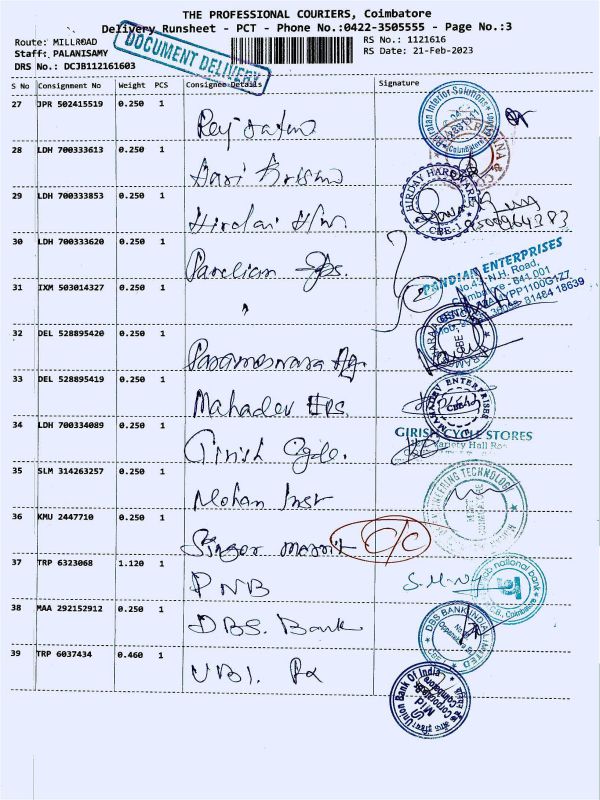 THE PROFESSIONAL COURIERS, Coimbatore
Delivery Runsheet - PCT - Phone No.:0422-3505555 - Page No.:3
Route: MILLROAD
RS No.: 1121616
Staff: PALANISAMY
RS Date: 21-Feb-2023
DRS No.: DCJB112161603
DOCUMENT DELIVERY
S No Consignment No Weight PCS Consignee Details Signature
27 JPR 502415519 0.250 1
Interior Solutions
Coimbatore
28 LDH 700333613 0.250 1
Hari Krishna
29 LDH 700333853 0.250 1
Hirdai H/w.
HIRDAY HARDWARE
CBE-1
30 LDH 700333620 0.250 1
Pandian
PANDIAN ENTERPRISES
N.H. Road,
641 001
31 IXM 503014327 0.250 1
"
32 DEL 528895420 0.250 1
Parameswara Ag.
33 DEL 528895419 0.250 1
Mahadev Eps.
MAHADEV ENTERPRISES
34 LDH 700334089 0.250 1
Girish Cycle.
GIRISH CYCLE STORES
Variety Hall Road
35 SLM 314263257 0.250 1
Mohan Inst
ENGINEERING TECHNOLOGY
36 KMU 2447710 0.250 1
Singer
O/C
37 TRP 6323068 1.120 1
PNB
national bank
Coimbatore
38 MAA 292152912 0.250 1
DBS. Bank
DBS BANK INDIA LIMITED
39 TRP 6037434 0.460 1
UBI.
Union Bank Of India